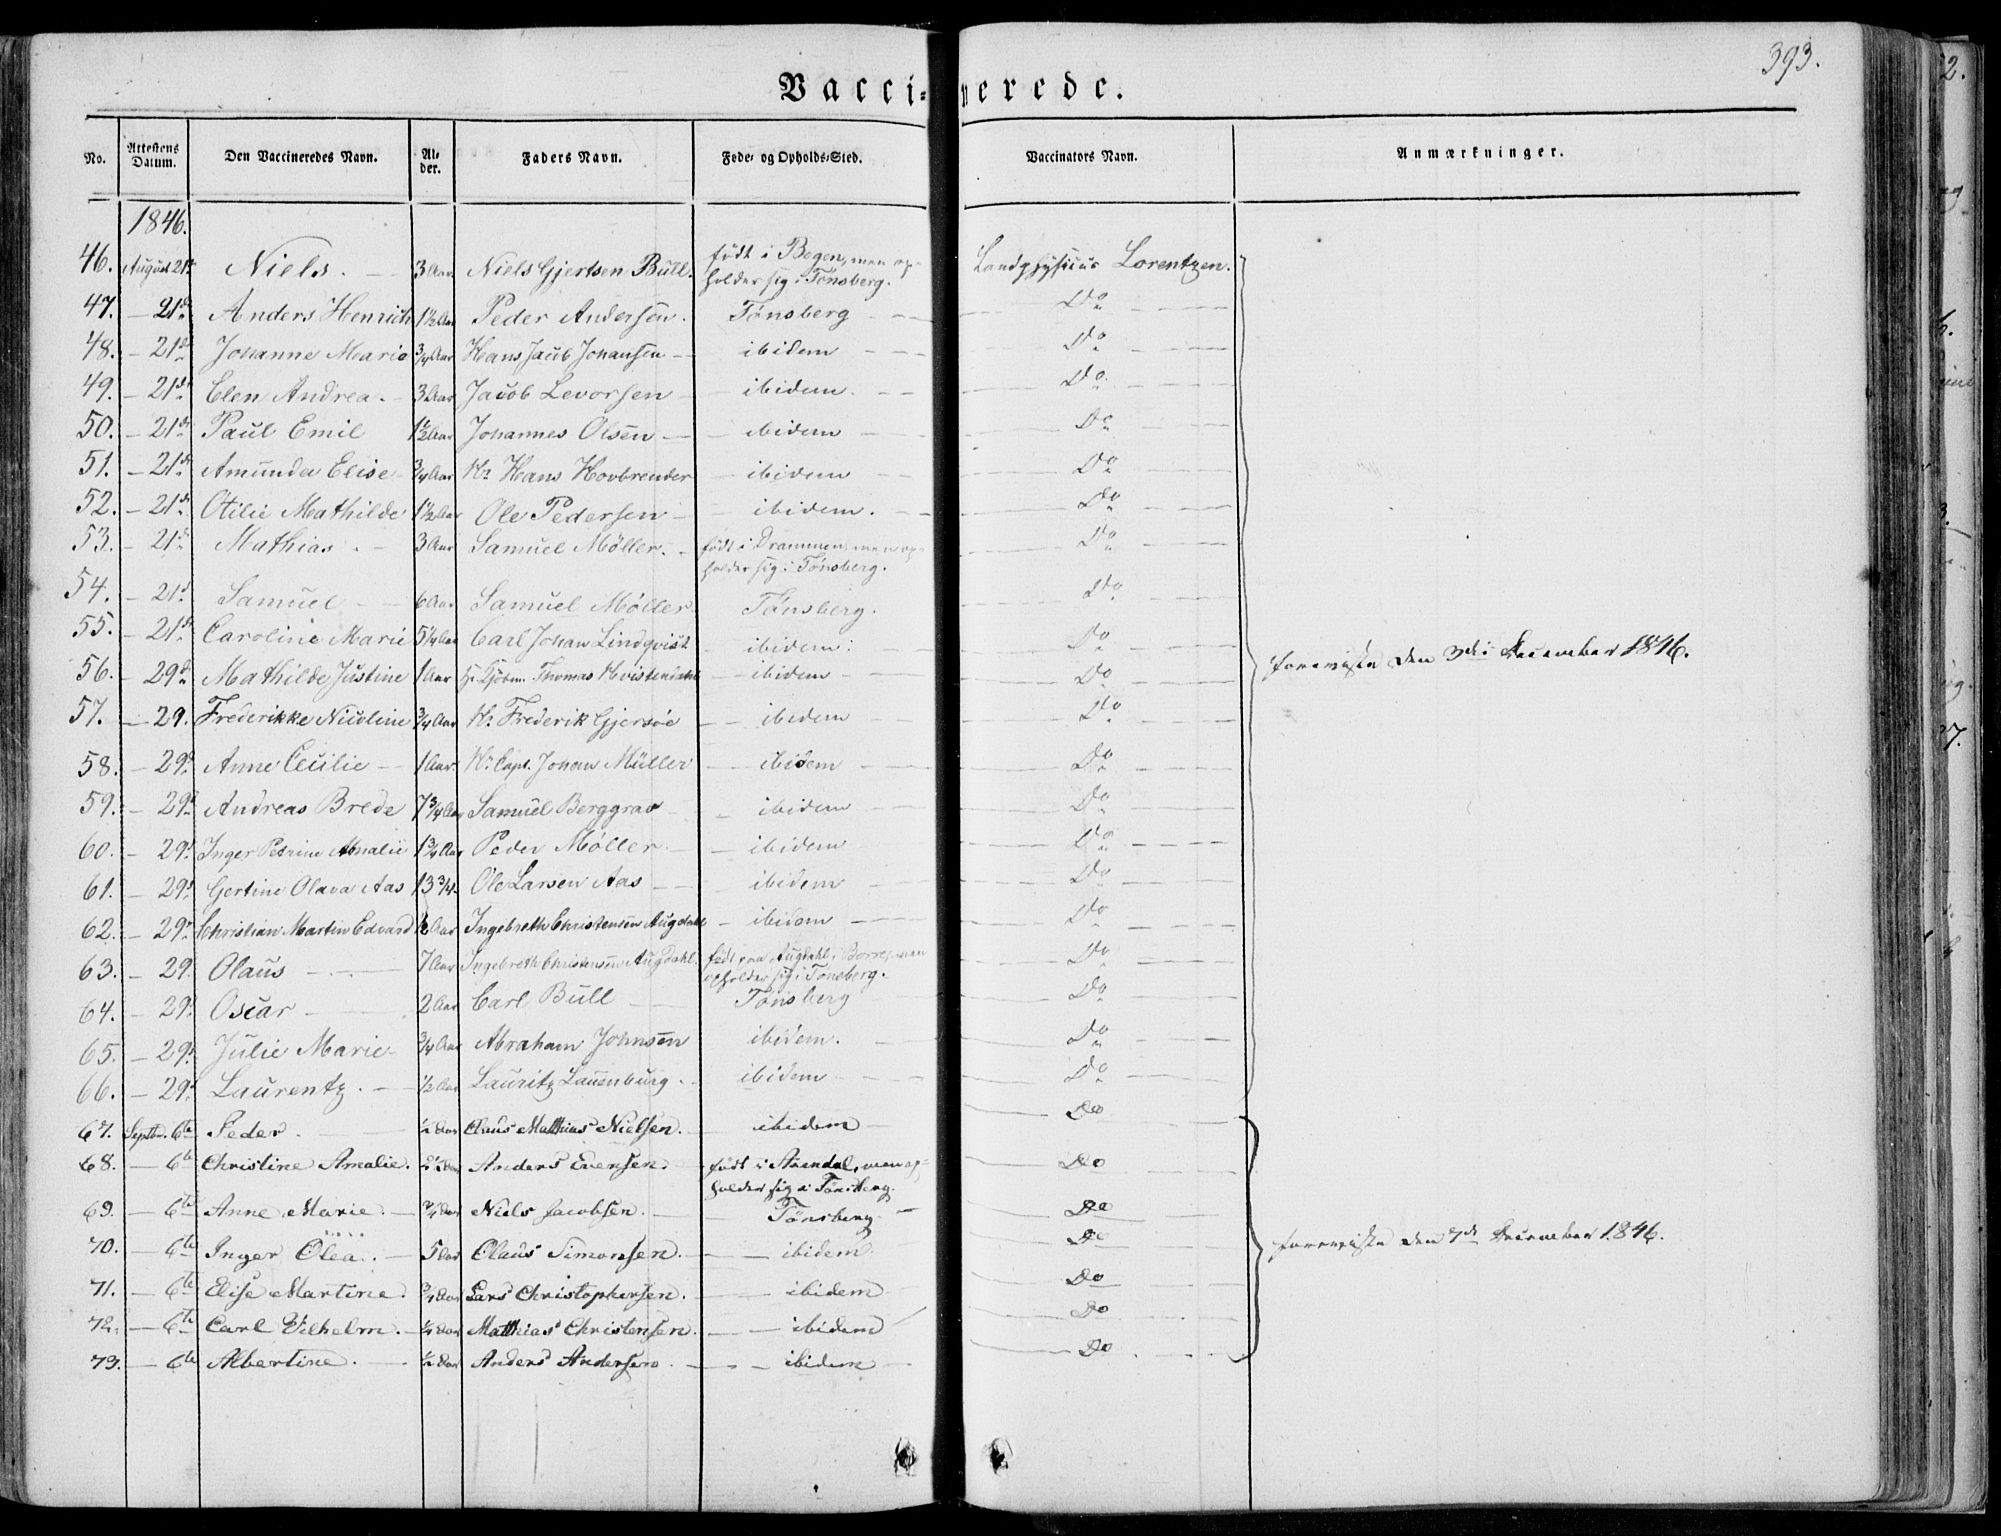 393.
Vaccinerede.
No. Attestens Datum. Den Vaccineredes Navn. Alder. Faders Navn. Føde- og Opholds-Sted. Vaccinators Navn. Anmærkninger.
1846.
46. August 21de Niels. 3 Aar. Niels Gjertsen Bull. født i Bogen, men opholder sig i Tønsberg. Landphysicus Lorentzen.
47. – 21de Anders Henrich 1½ Aar Peder Andersen. Tønsberg Do
48. – 21de Johanne Marie ¾ Aar Hans Jacob Johansen ibidem Do
49. – 21de Elen Andrea. 3 Aar Jacob Levorsen ibidem. Do
50. – 21de Paul Emil 1½ Aar Johannes Olsen ibidem Do
51. – 21de Amunda Elise ¾ Aar Hr. Hans Hovbrender ibidem Do
52. – 21de Otilie Mathilde 1½ Aar Ole Pedersen ibidem. Do
53. – 21de Mathias. 3 Aar Samuel Möller. født i Drammen, men opholder sig i Tønsberg. Do
54. – 21de Samuel 6 Aar Samuel Möller Tønsberg. Do
55. – 21de Caroline Marie 5¼ Aar Carl Johan Lindqvist ibidem. Do
56. – 29de Mathilde Justine 1 Aar Hr. Kjøbm. Thomas Hvistendahl ibidem Do
foreviste den 3die December 1846.
57. – 29. Frederikke Nicoline ¾ Aar Hr. Frederik Gjersøe ibidem Do
58. – 29de Anne Cecilie 1 Aar. Hr. Capt. Johan Müller ibidem Do
59. – 29de Andreas Brede 7¾ Aar Samuel Berggrav ibidem Do
60. – 29de Inger Petrine Amalie 1¾ Aar Peder Møller ibidem Do
61. – 29de Gertine Olava Aas 13¾. Ole Larsen Aas ibidem Do
62. – 29de Christian Martin Edvard ½ Aar Ingebreth Christensen Augdahl ibidem Do
63. – 29. Olaus 7 Aar Ingebreth Christensen Augdahl. født paa Augdahl i Borre, men opholder sig i Tønsberg. Do
64. – 29de Oscar 2 Aar Carl Bull Tønsberg Do
65. – 29de Julie Marie ¾ Aar Abraham Johnsen ibidem. Do
66. – 29de Laurentz. ½ Aar Lauritz Lauenburg. ibidem Do
67. Septbr. 6te Peder. ½ Aar Claus Matthias Nielsen. ibidem Do
68. – 6te Christine Amalie. 2½ Aar Anders Evensen. født i Arendal, men opholder sig i Tønsberg. Do
69. – 6te Anne Marie. ¾ Aar Niels Jacobsen. Tønsberg Do
70. – 6te Inger Olea. 5 Aar Olaus Simonsen. ibidem. Do
foreviste den 7de December 1846.
71. – 6te Elise Martine. ¾ Aar Lars Christophersen. ibidem Do
72. – 6te Carl Vilhelm. ¼ Aar Matthias Christensen. ibidem Do
73. – 6te Albertine. ½ Aar Anders Andersen. ibidem Do